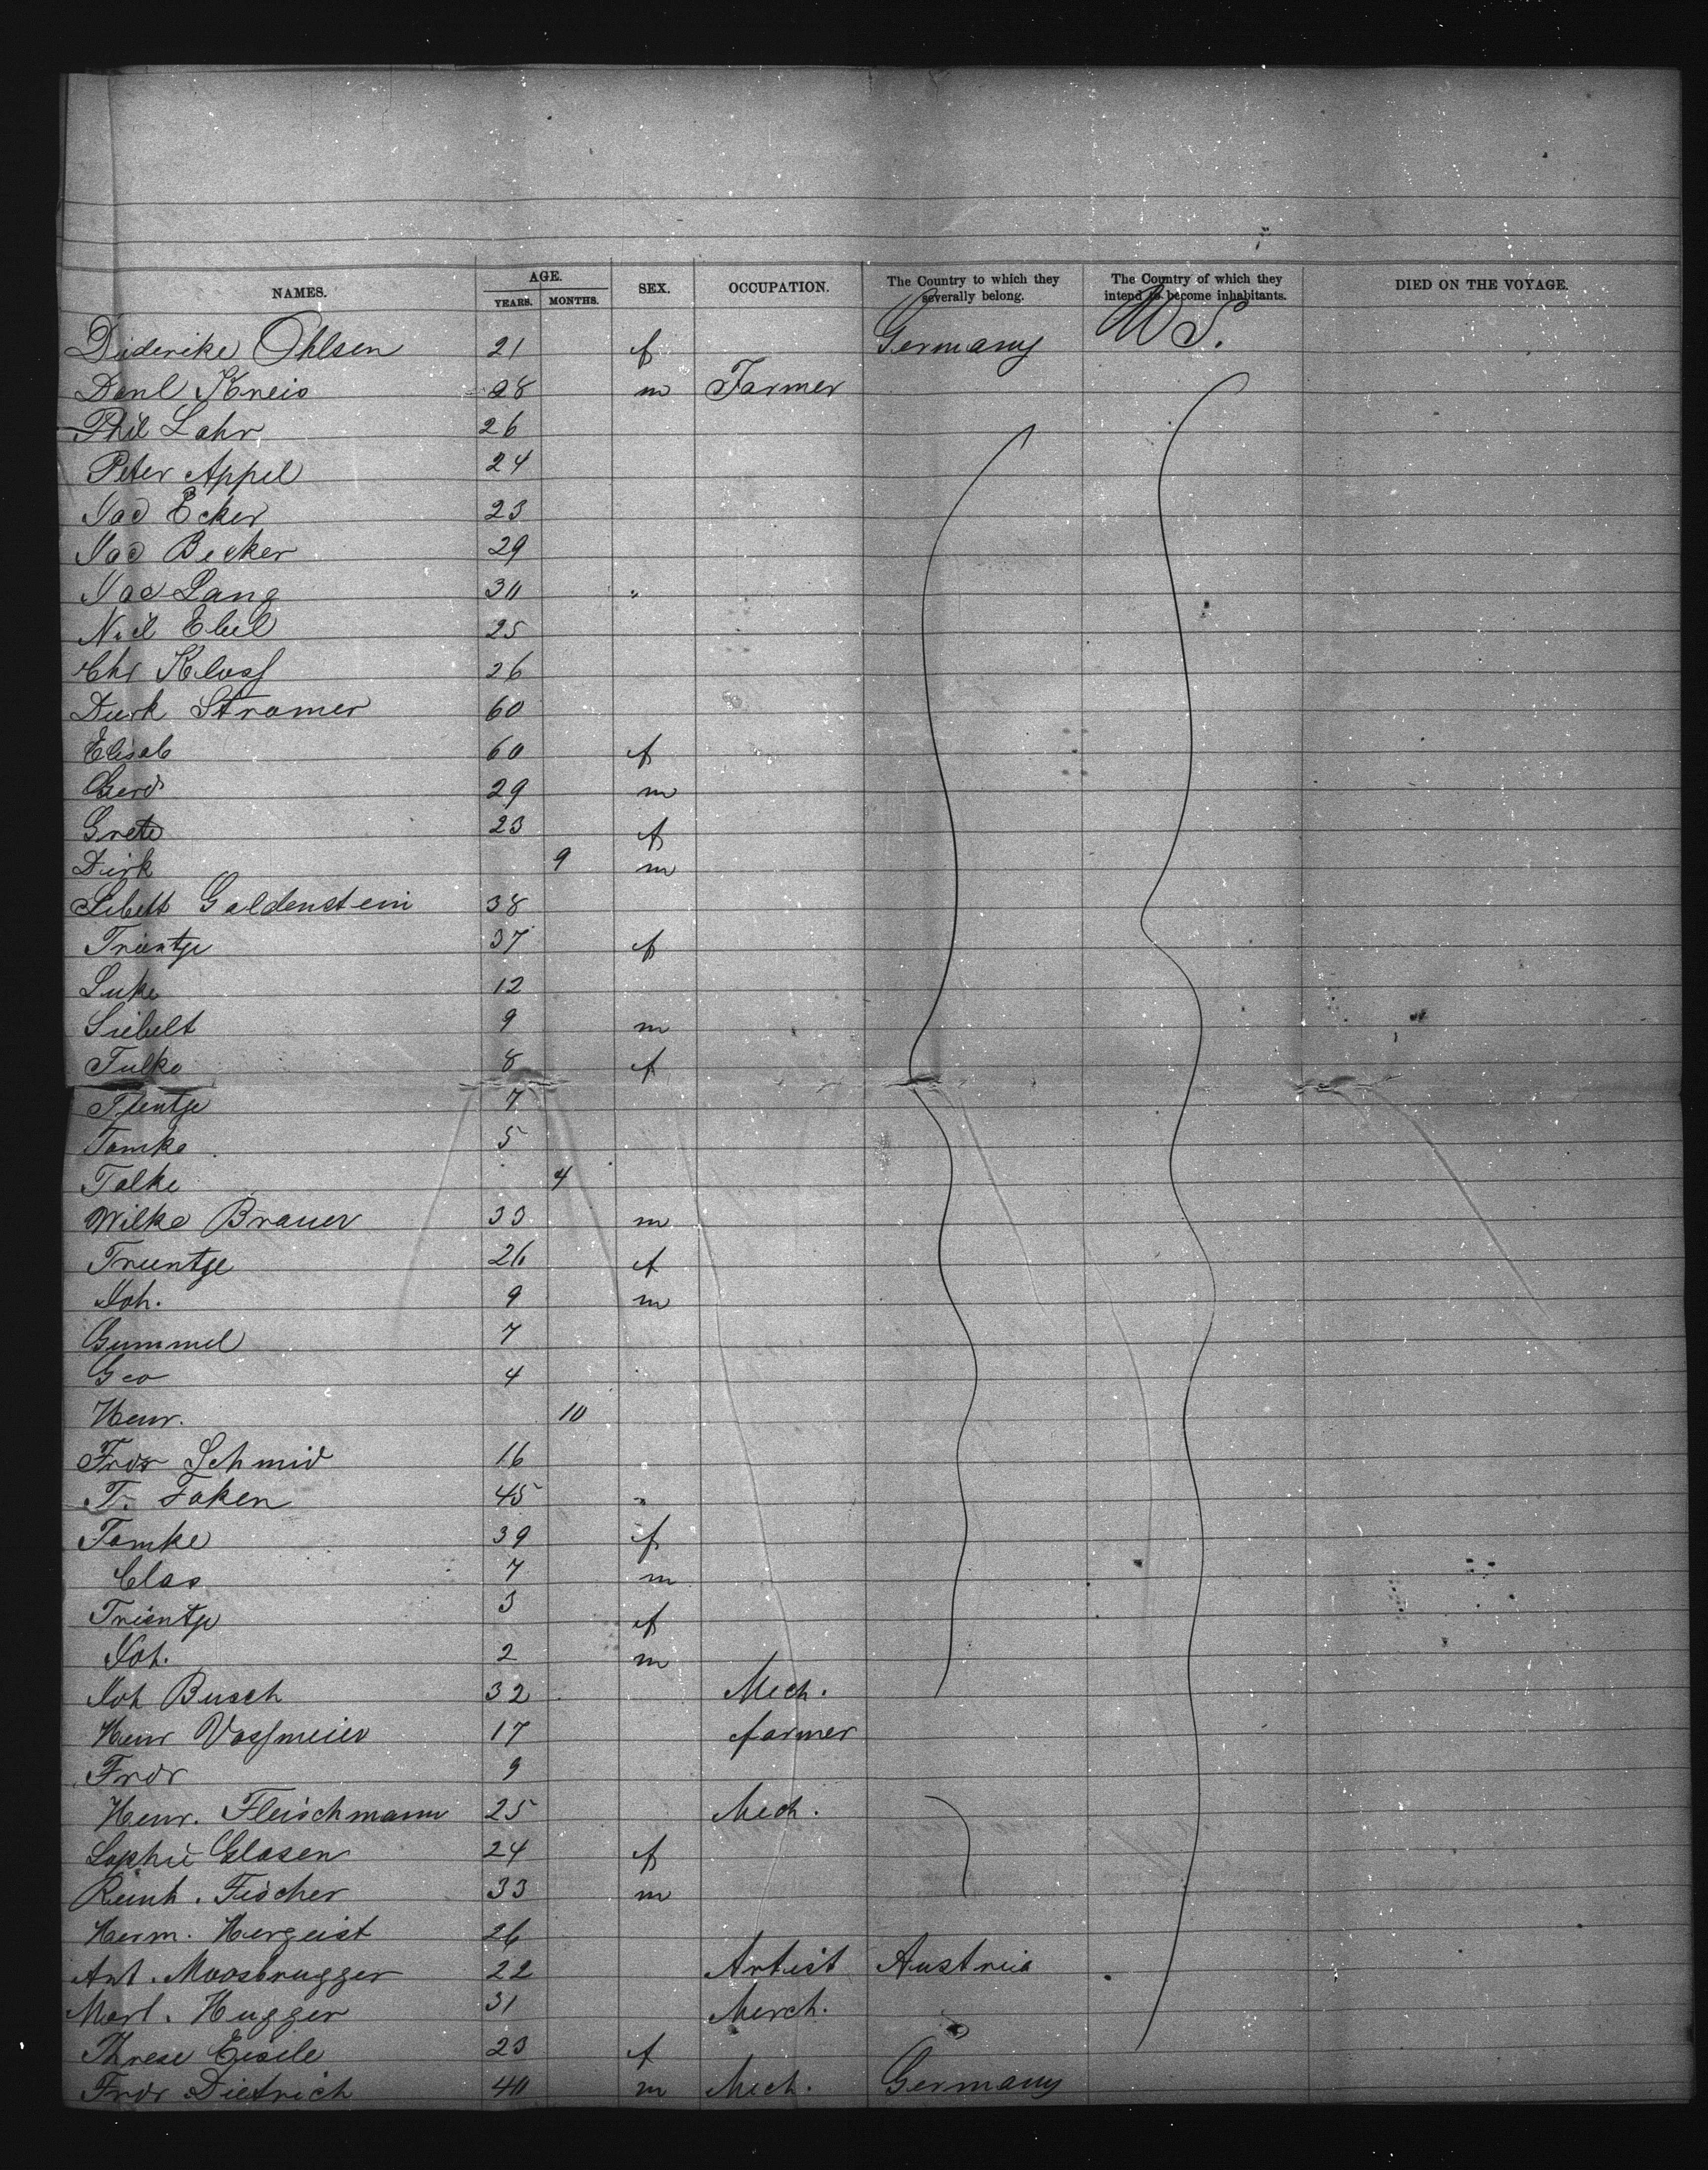 NAMES. AGE. YEARS. MONTHS. SEX. OCCUPATION. The Country to which they severally belong. The Country of which they intend to become inhabitants. DIED ON THE VOYAGE.
Diderike Ohlsen 21 f Germany U S.
Danl Kneis 28 m Farmer
Phil Lahr 26
Peter Appel 24
Jac Ecker 23
Jac Becker 29
Jac Lang 30 "
Nicl Ebel 25
Chr Kloss 26
Dirk Stromer 60
Elisab 60 f
Gerd 29 m
Grete 23 f
Dirk 9 m
Sibelt Goldenstein 38
Trientje 37 f
Luke 12
Siebelt 9 m
Fulke 8 f
Tientje 7
Tomke 5
Talke 4
Wilke Brauer 33 m
Trientje 26 f
Joh. 9 m
Gummel 7
Geo 4
Henr. 10
Frdr Schmid 16
T. Foken 45 "
Tomke 39 f
Clas 7 m
Trientje 3 f
Joh. 2 m
Joh Busch 32 Mech.
Henr Vossmeier 17 farmer
Frdr 9
Henr. Fleischmann 25 Mech.
Sophie Clasen 24 f
Reinh. Fischer 33 m
Herm. Hergeist 26
Ant. Moosbrugger 22 Artist Austria
Mart. Hugger 31 Merch.
Threse Eisele 23 f
Frdr Dietrich 40 m Mech. Germany